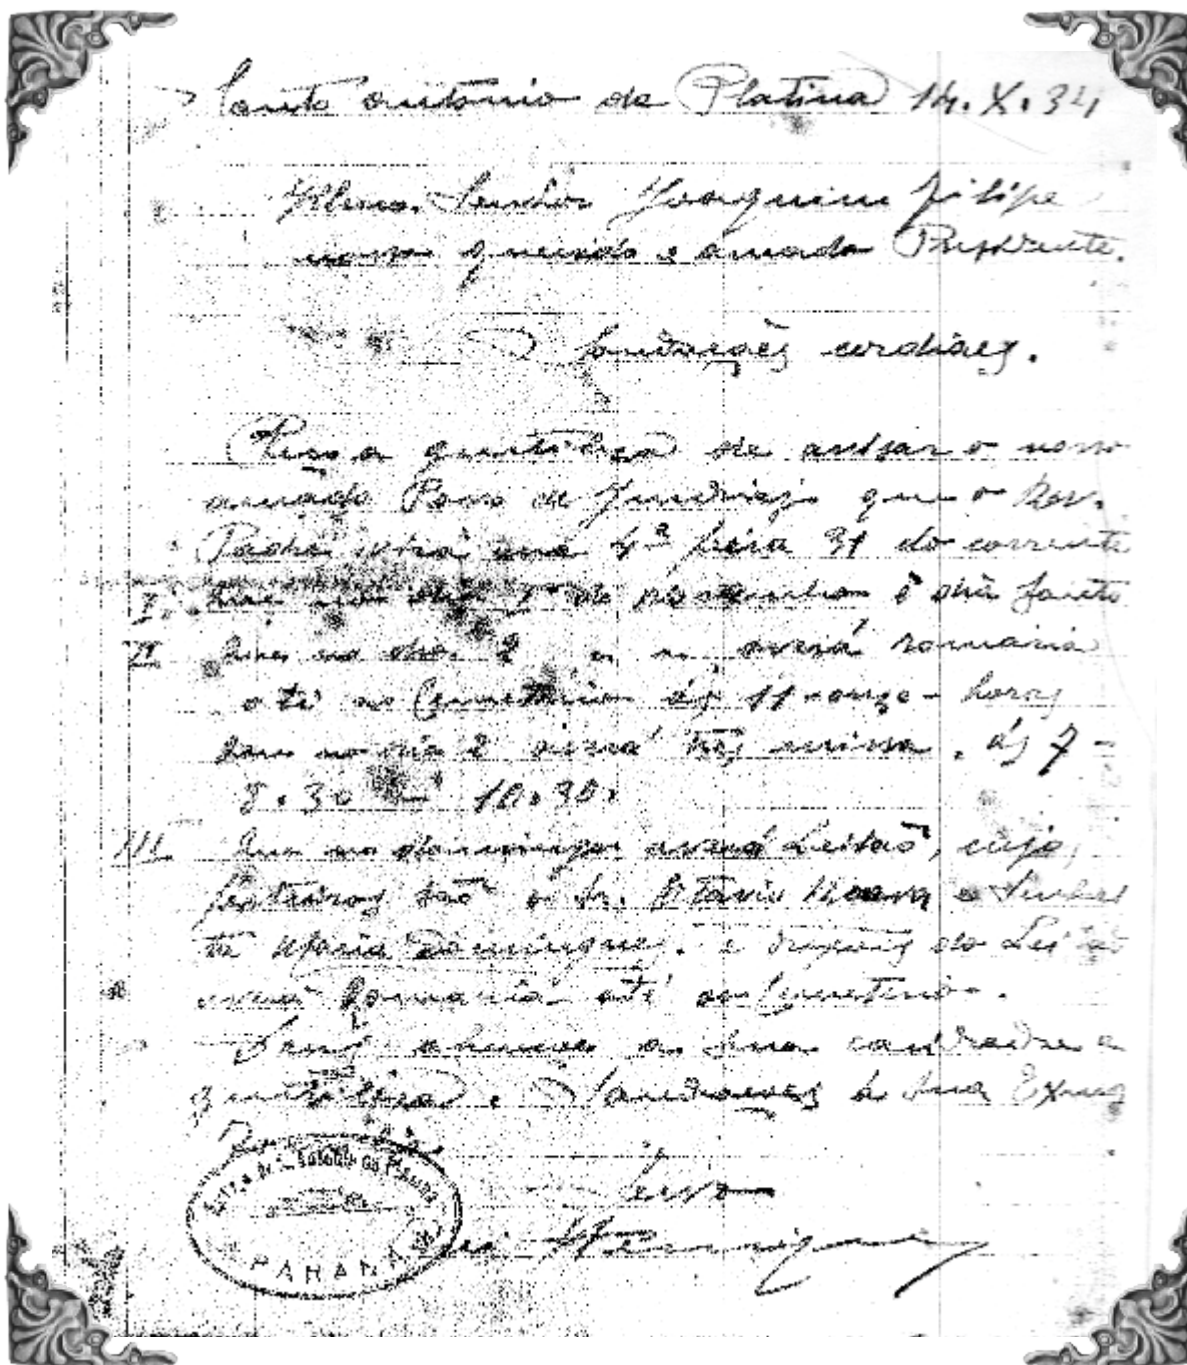 Santo Antonio da Platina 14. X. 34
Illmo. Senhor Joaquim Filipe
nosso querido e amado Presidente.
Saudações cordiaes.
a gentileza de avisar o nosso
amado Povo de Jundiahy que o Rev.
Padre virá na 4ª feira 31 do corrente
I. que no dia 1º de Novembro é dia Santo
II que no dia 2 averá romaria
até no Cemeterio ás 11 - onze - horas
que no dia 2 averá três missa. ás 7 -
8.30 10.30.
III. que no domingo averá Leitaõ, cujo,
festeiros saõ o Sr. Otavio e Senhori
ta Maria Domingues. e depois do Leitaõ
averá Romaria até ao Cemeterio.
a sua caridade e
gentileza. Saudações á sua Exma
PARANÁ
Servo
Henrique